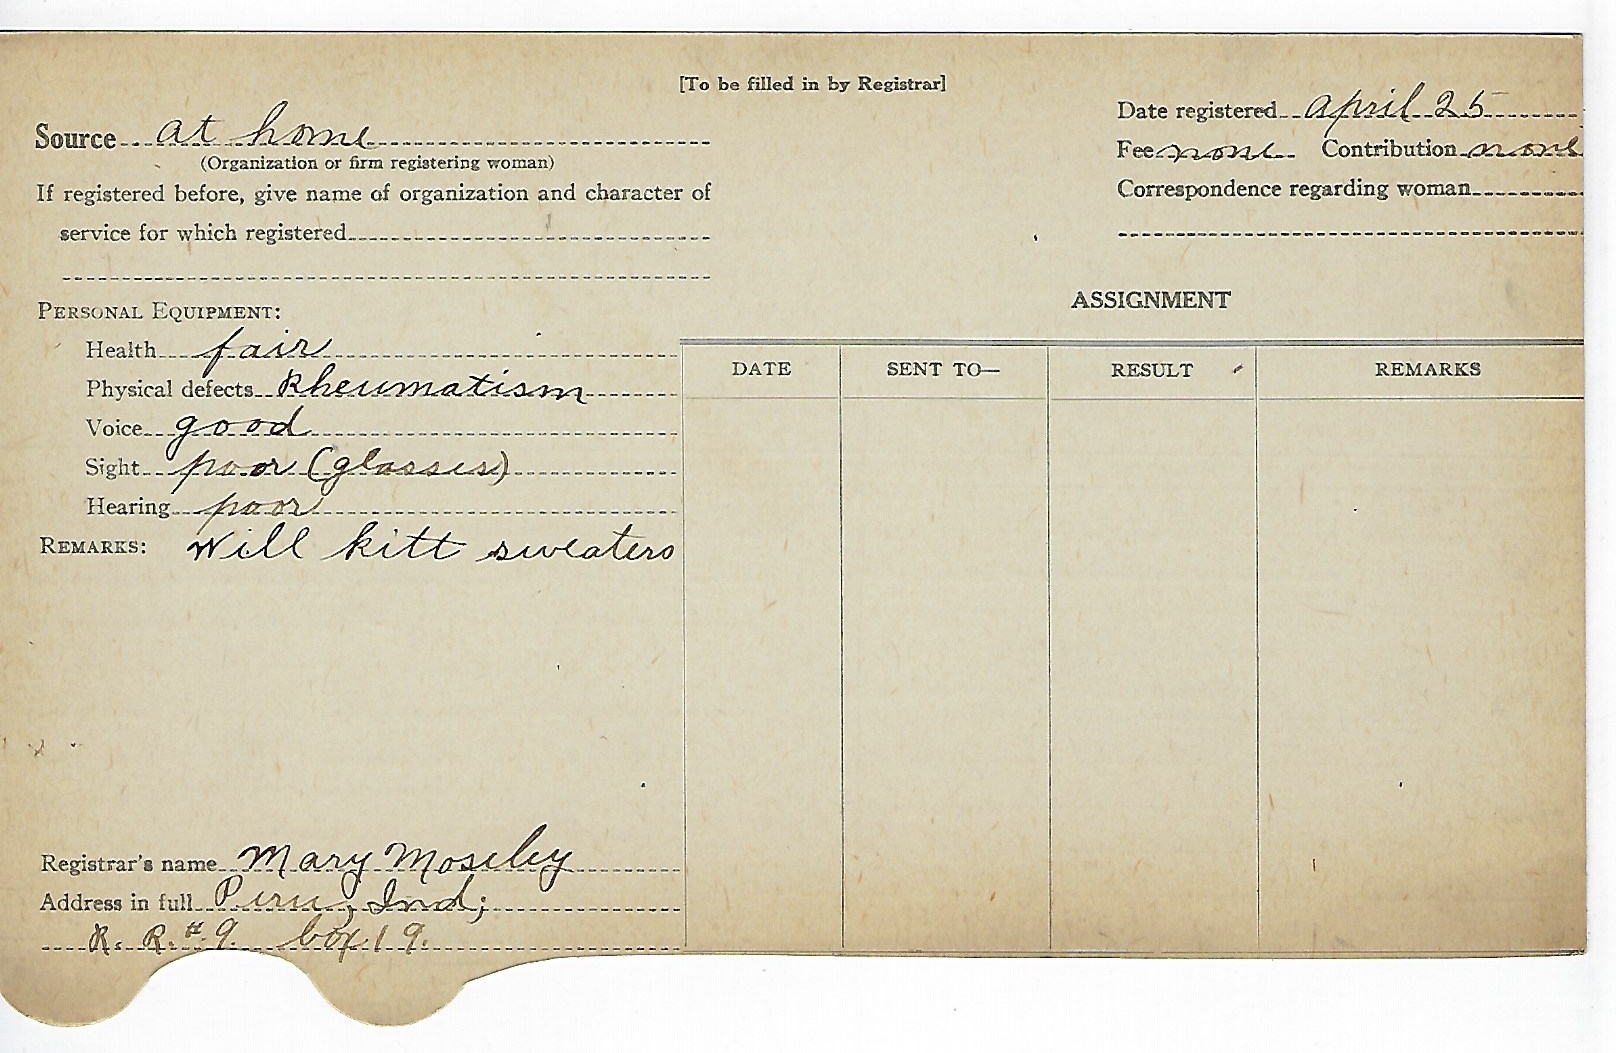 [To be filled in by Registrar]
Source at home
(Organization or firm registering woman)
If registered before, give name of organization and character of
service for which registered
Date registered april 25
Fee none Contribution none
Correspondence regarding woman
PERSONAL EQUIPMENT:
Health fair
Physical defects Rheumatism
Voice good
Sight poor (glasses)
Hearing poor
REMARKS: Will kitt sweaters
ASSIGNMENT
DATE SENT TO— RESULT REMARKS
Registrar's name Mary Moseley
Address in full Peru, Ind;
R. R. # 9. box 19.